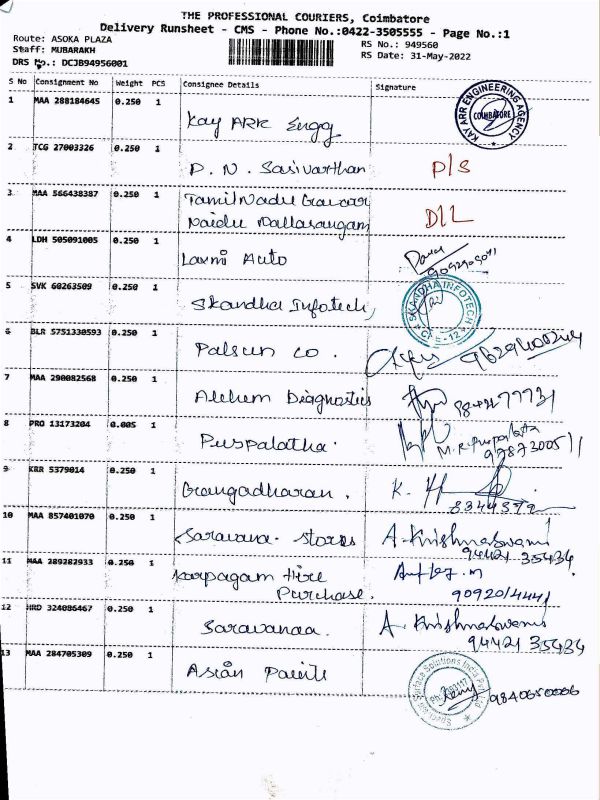 THE PROFESSIONAL COURIERS, Coimbatore
Delivery Runsheet - CMS - Phone No.:0422-3505555 - Page No.:1
Route: ASOKA PLAZA
Staff: MUBARAKH
DRS No.: DCJB94956001
RS No.: 949560
RS Date: 31-May-2022
S No Consignment No Weight PCS Consignee Details Signature
1 MAA 288184645 0.250 1 Kay ARR Engg KAY ARR ENGINEERING AGENCY COIMBATORE
2 TCG 27003326 0.250 1 P. N. Sasivarthan P/S
3 MAA 566438387 0.250 1 Tamil Nadu
Naidu D/L
4 LDH 505091005 0.250 1 Laxmi Auto
5 SVK 60263509 0.250 1 Skandha Infotech, SKANDHA INFOTECH CBE-12
6 BLR 5751330593 0.250 1 Palsun co.
7 MAA 290082568 0.250 1 Diagnostics
8 PRO 13173204 0.005 1 Puspalatha.
9 KRR 5379014 0.250 1 Gangadharan.
10 MAA 857401070 0.250 1 Saravana. Stores A. Krishnaswami
94421 35434
11 MAA 289282933 0.250 1 Karpagam Hire
Purchase.
12 HRD 324086467 0.250 1 Saravanaa. A. Krishnaswami
94421 35434
13 MAA 284705309 0.250 1 Asian Paints Surface Solutions India Pvt Ltd